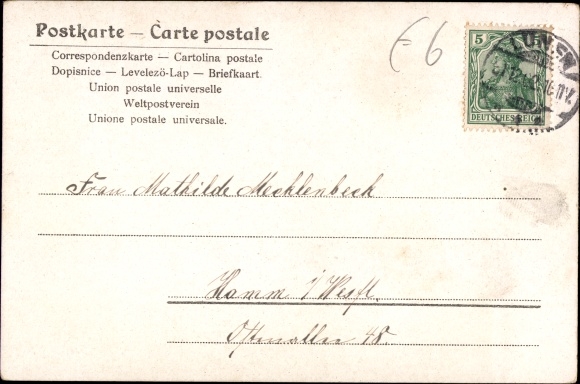 Postkarte — Carte postale
Correspondenzkarte — Cartolina postale
Dopisnice — Levelező-Lap — Briefkaart.
Union postale universelle
Weltpostverein
Unione postale universale.
6
5
DEUTSCHES REICH
LÜNEN
Frau Mathilde Mecklenbeck
Hamm i/Westf.
Ostenallee 48.